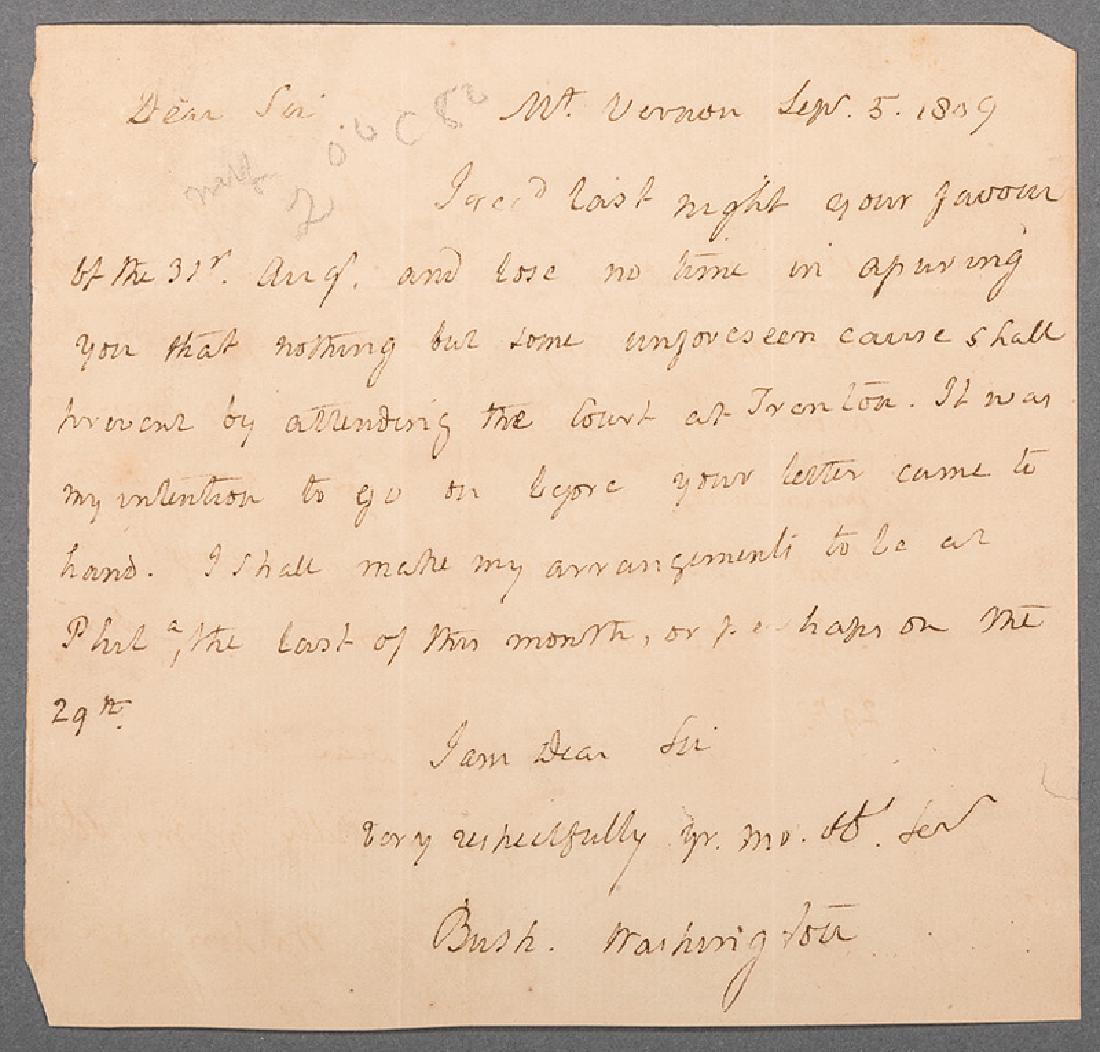 Dear Sir Mt. Vernon Sepr. 5. 1809
I recd last night your favour
of the 31st. Augt. and lose no time in assuring
you that nothing but some unforeseen cause shall
prevent by attending the Court at Trenton. It was
my intention to go on before your letter came to
hand. I shall make my arrangements to be at
Phila, the last of this month, or perhaps on the
29th.
I am Dear Sir
very respectfully yr. mo. ob. Servt
Bush. Washington